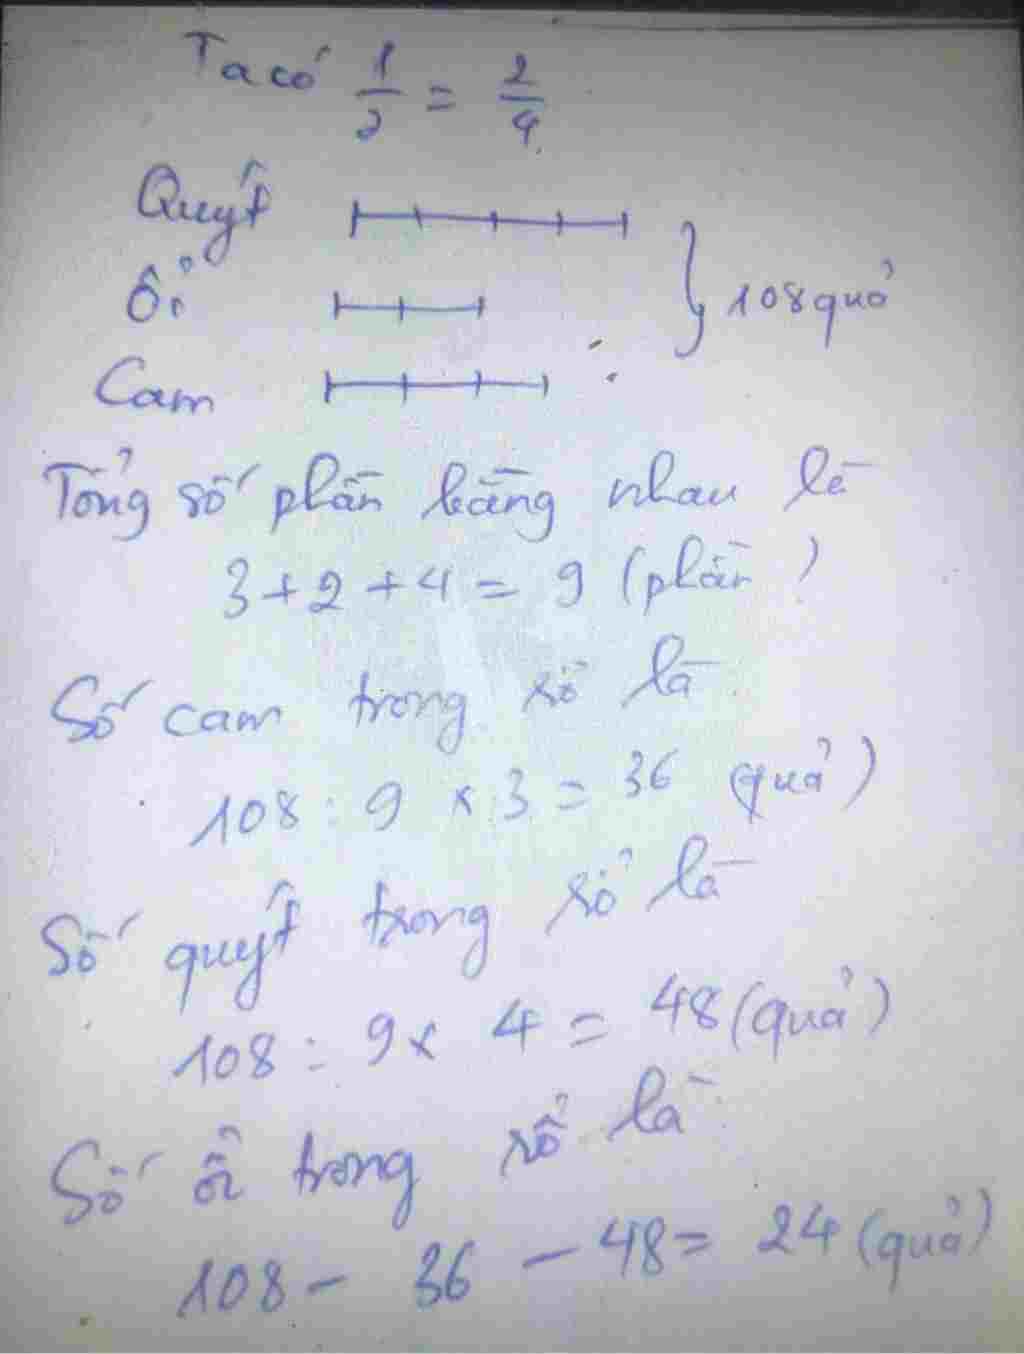 Ta có 1/2 = 2/4
Quýt
Ổi
108 quả
Cam
Tổng số phần bằng nhau là
3 + 2 + 4 = 9 (phần)
Số cam trong rổ là
108 : 9 x 3 = 36 (quả)
Số quýt trong rổ là
108 : 9 x 4 = 48 (quả)
Số ổi trong rổ là
108 - 36 - 48 = 24 (quả)